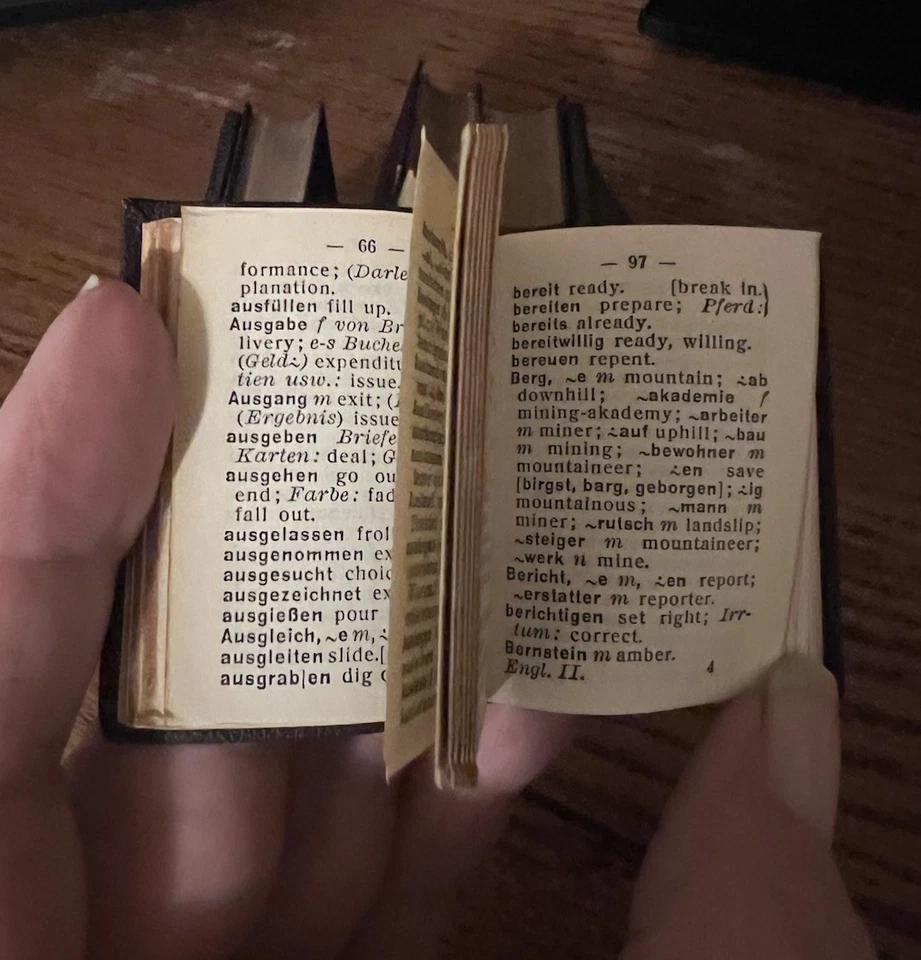 — 66 —
formance; (Darle
planation.
ausfüllen fill up.
Ausgabe f von Br
livery; e-s Buche
(Geld⩪) expenditu
tien usw.: issue.
Ausgang m exit; (
(Ergebnis) issue
ausgeben Briefe
Karten: deal; G
ausgehen go ou
end; Farbe: fad
fall out.
ausgelassen frol
ausgenommen ex
ausgesucht choic
ausgezeichnet ex
ausgießen pour
Ausgleich, ~e m, ⩪
ausgleiten slide. [
ausgrab|en dig
— 97 —
bereit ready. [break in.)
bereiten prepare; Pferd:)
bereits already.
bereitwillig ready, willing.
bereuen repent.
Berg, ~e m mountain; ⩪ab
downhill; ~akademie f
mining-akademy; ~arbeiter
m miner; ⩪auf uphill; ~bau
m mining; ~bewohner m
mountaineer; ⩪en save
[birgst, barg, geborgen]; ⩪ig
mountainous; ~mann m
miner; ~rutsch m landslip;
~steiger m mountaineer;
~werk n mine.
Bericht, ~e m, ⩪en report;
~erstatter m reporter.
berichtigen set right; Irr-
tum: correct.
Bernstein m amber.
Engl. II. 4